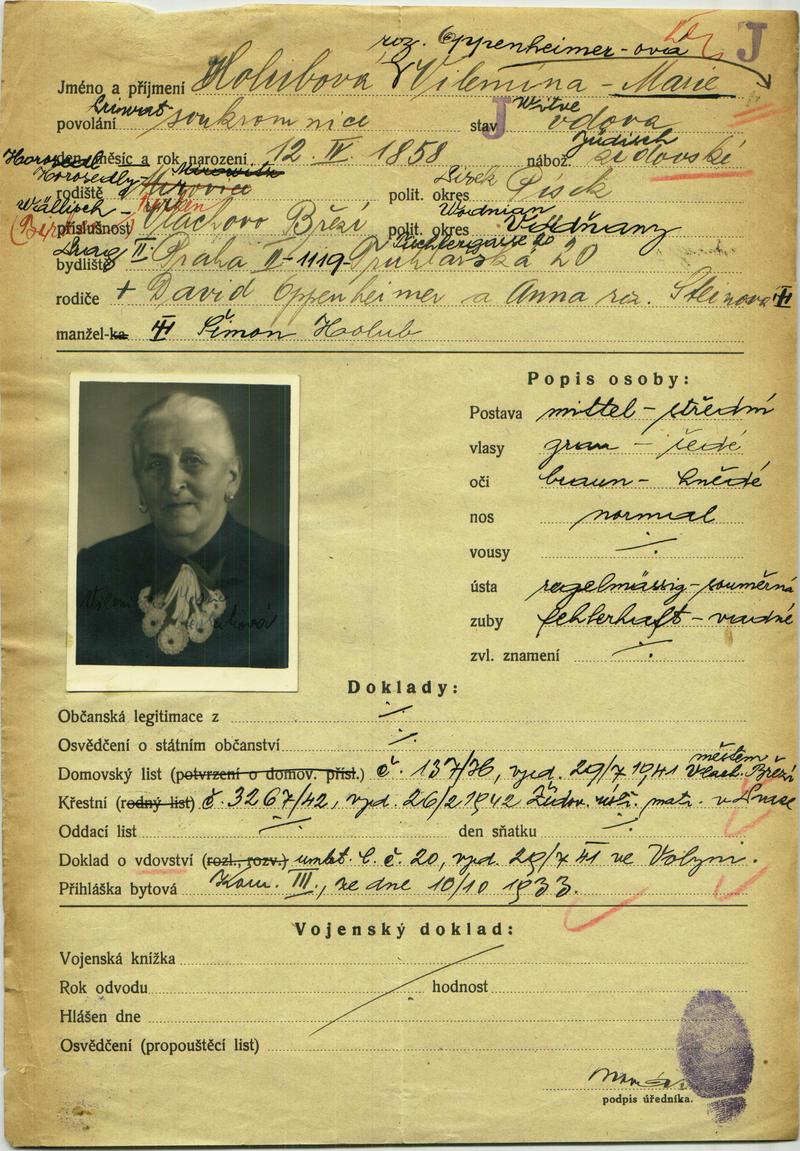 roz. Oppenheimer-ová
J
Jméno a příjmení Holubová Vilemína - Marie
Privat Witwe
povolání soukromnice stav J vdova
Jüdisch
den, měsíc a rok narození 12. IV. 1858 nábož. židovské
Horosedl
Horosedly Mirowitz Pisek
rodiště Mirovice polit. okres Písek
Wällisch - Wodnian
příslušnost Vlachovo Březí polit. okres Vodňany
Prag II.
bydliště Praha II-1119-Truhlářská 20
rodiče + David Oppenheimer a Anna roz. Steinova
manžel-ka Šimon Holub
Popis osoby:
Postava mittel - střední
vlasy grau - šedé
oči braun - hnědé
nos normal
vousy ·/·
ústa regelmässig - souměrná
zuby fehlerhaft - vadné
zvl. znamení ·/·
Doklady:
Občanská legitimace z ·/·
Osvědčení o státním občanství ·/·
městem
Domovský list (potvrzení o domov. přísl.) č. 137/36, vyd. 29/7 1941 Vlach. Březí
Křestní (rodný list) č. 3267/42, vyd. 26/2 1942 Židov. matr. v Praze
Oddací list ·/· den sňatku ·/·
Doklad o vdovství (rozl., rozv.) úmrt. l. č. 20, vyd. 29/7 41 ve Volyni.
Přihláška bytová Kom. III., ze dne 10/10 1933.
Vojenský doklad:
Vojenská knížka
Rok odvodu hodnost
Hlášen dne
Osvědčení (propouštěcí list)
podpis úředníka.